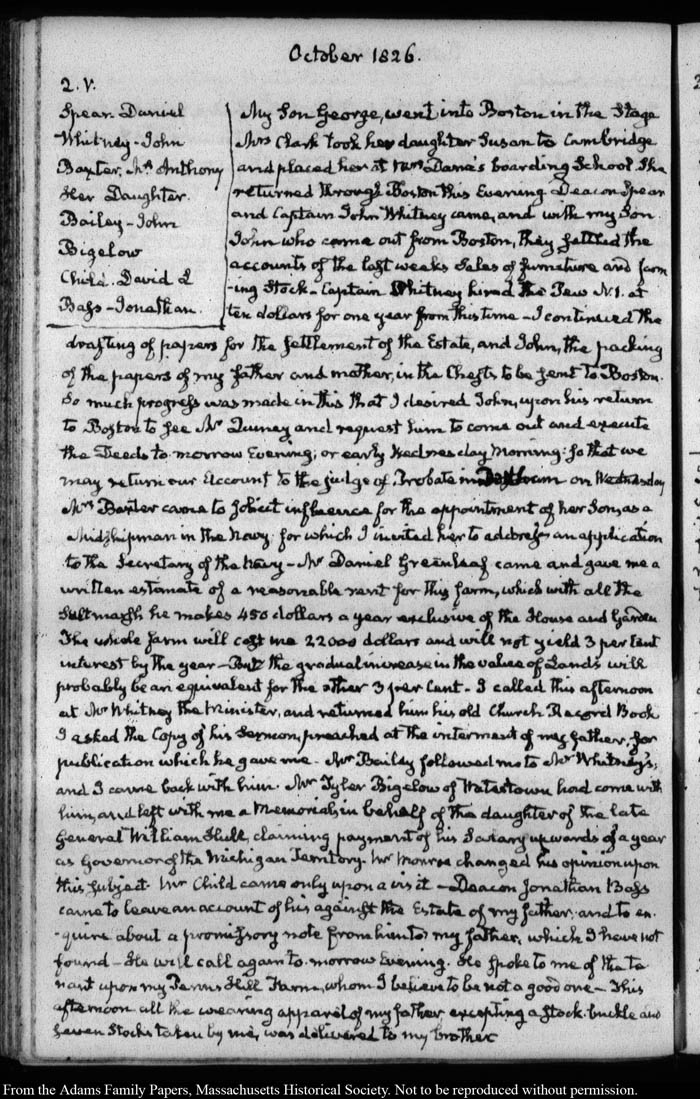 October 1826.
2. V.
Spear. Daniel
Whitney - John
Baxter, Mrs. Anthony
Her Daughter.
Bailey - John
Bigelow
Child. David L
Bass - Jonathan.
My Son George, went into Boston in the Stage
Mrs Clark took her daughter Susan to Cambridge
and placed her at Mrs Dana's boarding School. She
returned through Boston this Evening. Deacon Spear
and Captain John Whitney came, and with my Son
John who came out from Boston, they settled the
accounts of the last weeks Sales of furniture and farm
-ing Stock - Captain Whitney hired the Pew N. 1. at
ten dollars for one year from this time - I continued the
drafting of papers for the settlement of the Estate, and John, the packing
of the papers of my father and mother, in the Chests to be sent to Boston.
So much progress was made in this that I desired John, upon his return
to Boston to see Mr Quincy and request him to come out and execute
the Deeds to-morrow Evening; or early Wednesday Morning: so that we
may return our Account to the judge of Probate in Dedham on Wednesday
Mrs Baxter came to solicit influence for the appointment of her Son, as a
Midshipman in the Navy: for which I invited her to address an application
to the Secretary of the Navy - Mr Daniel Greenleaf came and gave me a
written estimate of a reasonable rent for this farm, which with all the
Saltmarsh he makes 450 dollars a year exclusive of the House and Garden
The whole farm will cost me 22000 dollars and will not yield 3 per Cent
interest by the year - But the gradual increase in the value of Lands will
probably be an equivalent for the other 3 per Cent - I called this afternoon
at Mr Whitney the Minister, and returned him his old Church Record Book
I asked the Copy of his Sermon, preached at the interment of my father, for
publication which he gave me - Mr Bailey followed me to Mr Whitney's;
and I came back with him. Mr Tyler Bigelow of Watertown had come with
him, and left with me a Memorial, in behalf of the daughter of the late
General William Hull, claiming payment of his Salary upwards of a year
as Governor of the Michigan Territory. Mr Monroe changed his opinion upon
this subject. Mr Child came only upon a visit - Deacon Jonathan Bass
came to leave an account of his against the Estate of my father; and to en-
-quire about a promissory note from him to my father, which I have not
found - He will call again to-morrow Evening. He spoke to me of the te
nant upon my Penns Hill Farm, whom I believe to be not a good one - This
afternoon all the wearing apparel of my father excepting a stock-buckle and
seven Stocks taken by me, was delivered to my brother
From the Adams Family Papers, Massachusetts Historical Society. Not to be reproduced without permission.